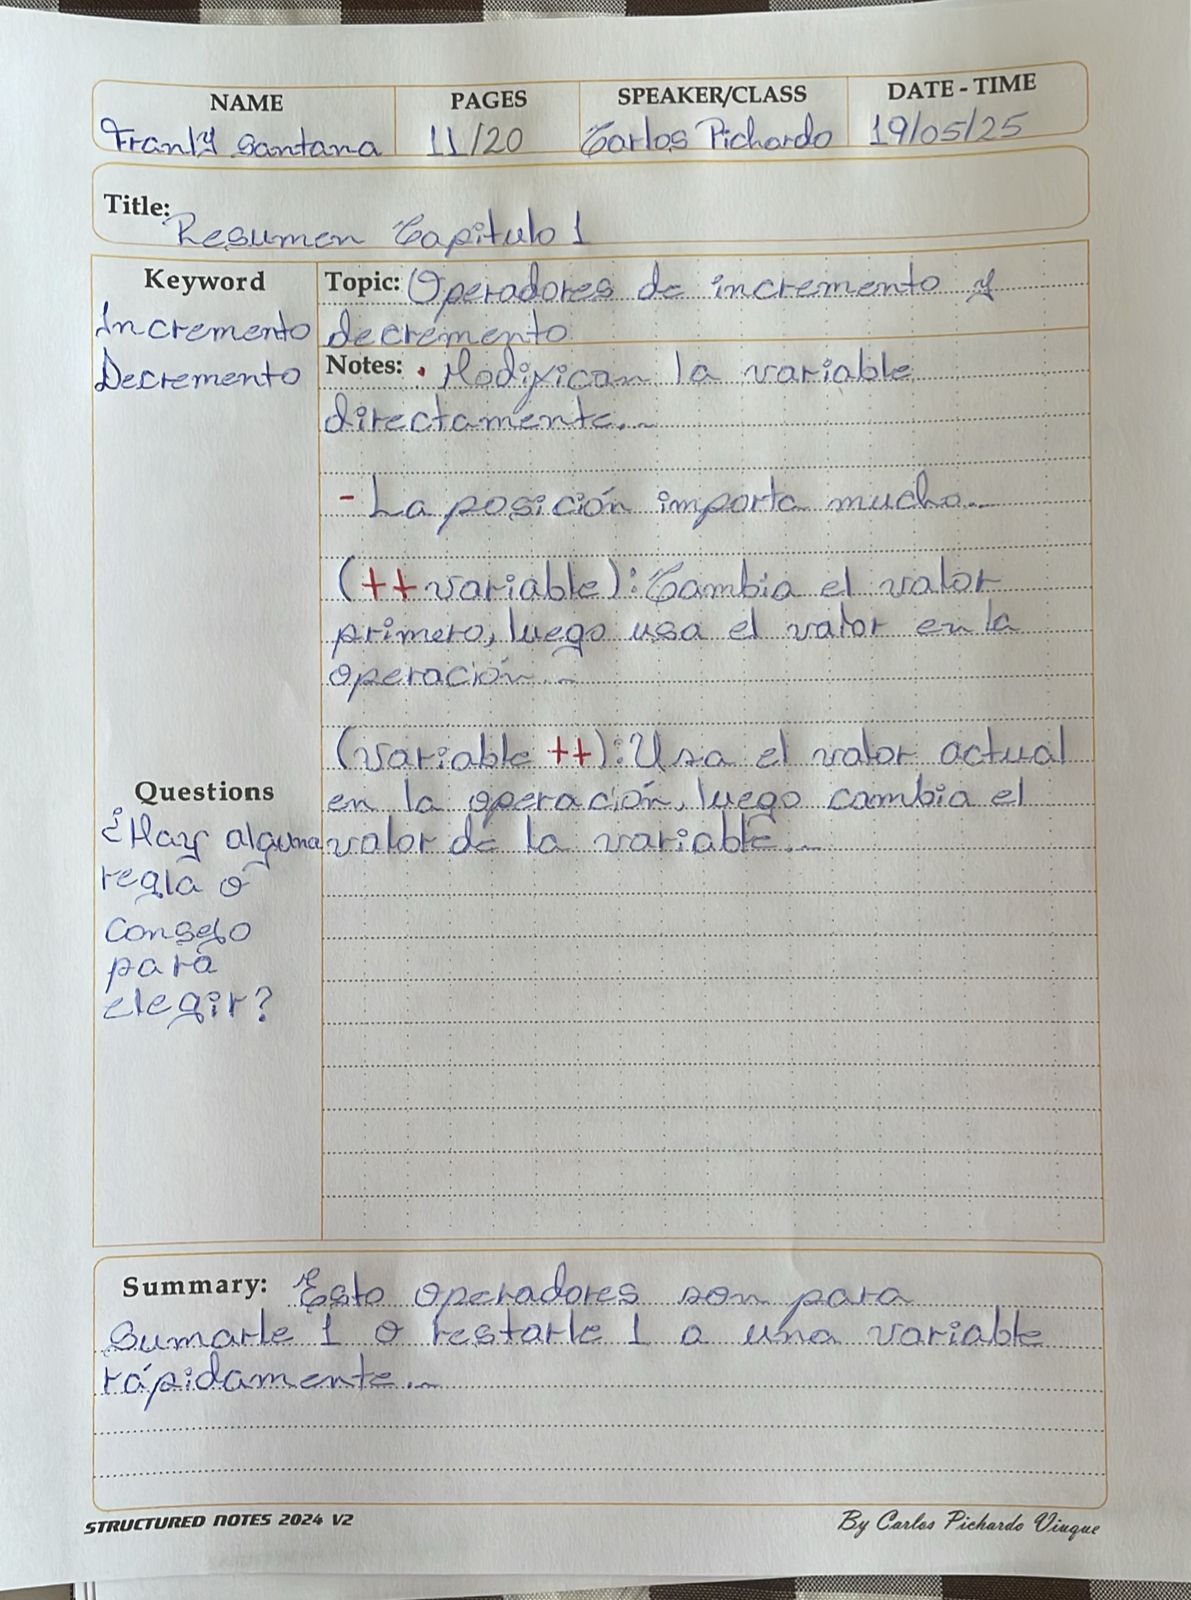 NAME PAGES SPEAKER/CLASS DATE - TIME
Franly Santana 11/20 Carlos Pichardo 19/05/25
Title:
Resumen Capitulo 1
Keyword
Incremento
Decremento
Topic: Operadores de incremento y
decremento
Notes: • Modifican la variable
directamente...
- La posición importa mucho...
(++variable): Cambia el valor
primero, luego usa el valor en la
operación...
(variable ++): Usa el valor actual
en la operación, luego cambia el
valor de la variable...
Questions
¿Hay alguna
regla o
consejo
para
elegir?
Summary: Esto operadores son para
sumarle 1 o restarle 1 a una variable
rápidamente...
STRUCTURED NOTES 2024 V2
By Carlos Pichardo Viuque